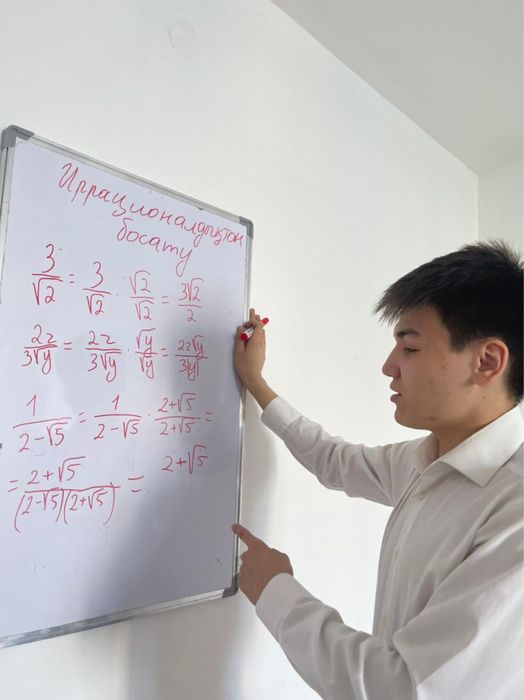 Иррационалдықтан
босату
3/√2 = 3/√2 · √2/√2 = 3√2/2
2z/3√y = 2z/3√y · √y/√y = 2z√y/3|y|
1/(2-√5) = 1/(2-√5) · (2+√5)/(2+√5) =
= (2+√5)/((2-√5)(2+√5)) = 2+√5